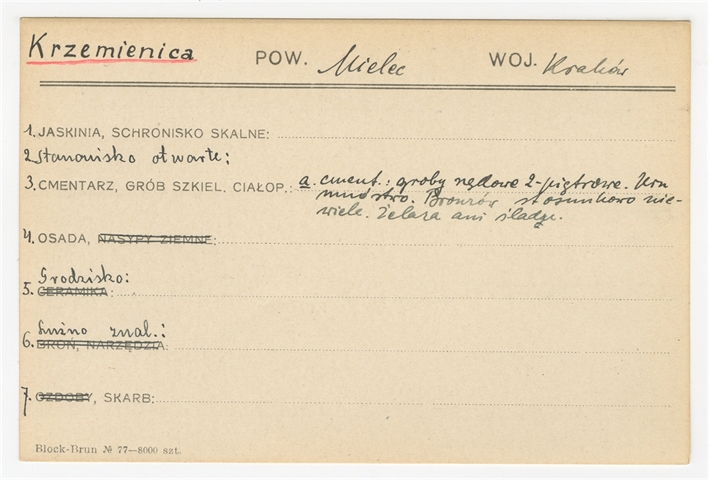 Krzemienica POW. Mielec WOJ. Kraków
1. JASKINIA, SCHRONISKO SKALNE:
2. Stanowisko otwarte:
3. CMENTARZ, GRÓB SZKIEL, CIAŁOP.: a. cment.: groby rzędowe 2-piętrowe. Urn
mnóstwo. Bronzów stosunkowo nie-
wiele. Żelaza ani śladu.
4. OSADA, NASYPY ZIEMNE:
Grodzisko:
5. CERAMIKA:
Luźno znal.:
6. BROŃ, NARZĘDZIA:
7. OZDOBY, SKARB:
Block-Brun № 77—8000 szt.